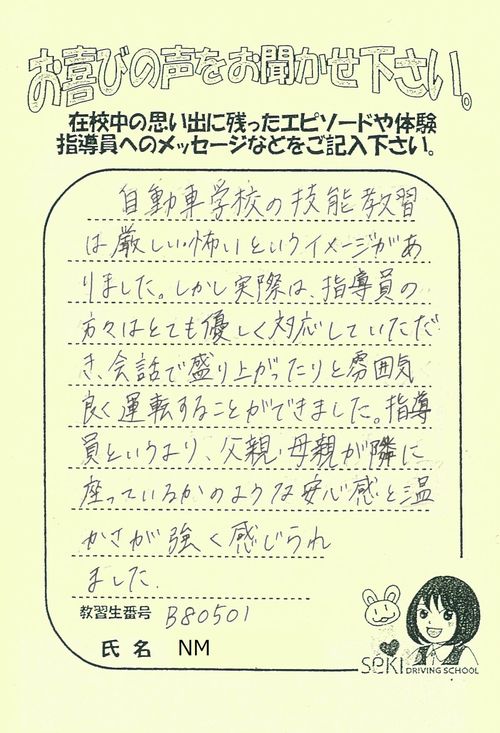 お喜びの声をお聞かせ下さい。
在校中の思い出に残ったエピソードや体験
指導員へのメッセージなどをご記入下さい。
自動車学校の技能教習
は厳しい怖いというイメージがあ
りました。しかし実際は、指導員の
方々はとても優しく対応していただ
き、会話で盛り上がったりと雰囲気
良く運転することができました。指導
員というより、父親・母親が隣に
座っているかのような安心感と温
かさが強く感じられ
ました.
教習生番号 B80501
氏名 NM
SEKI DRIVING SCHOOL